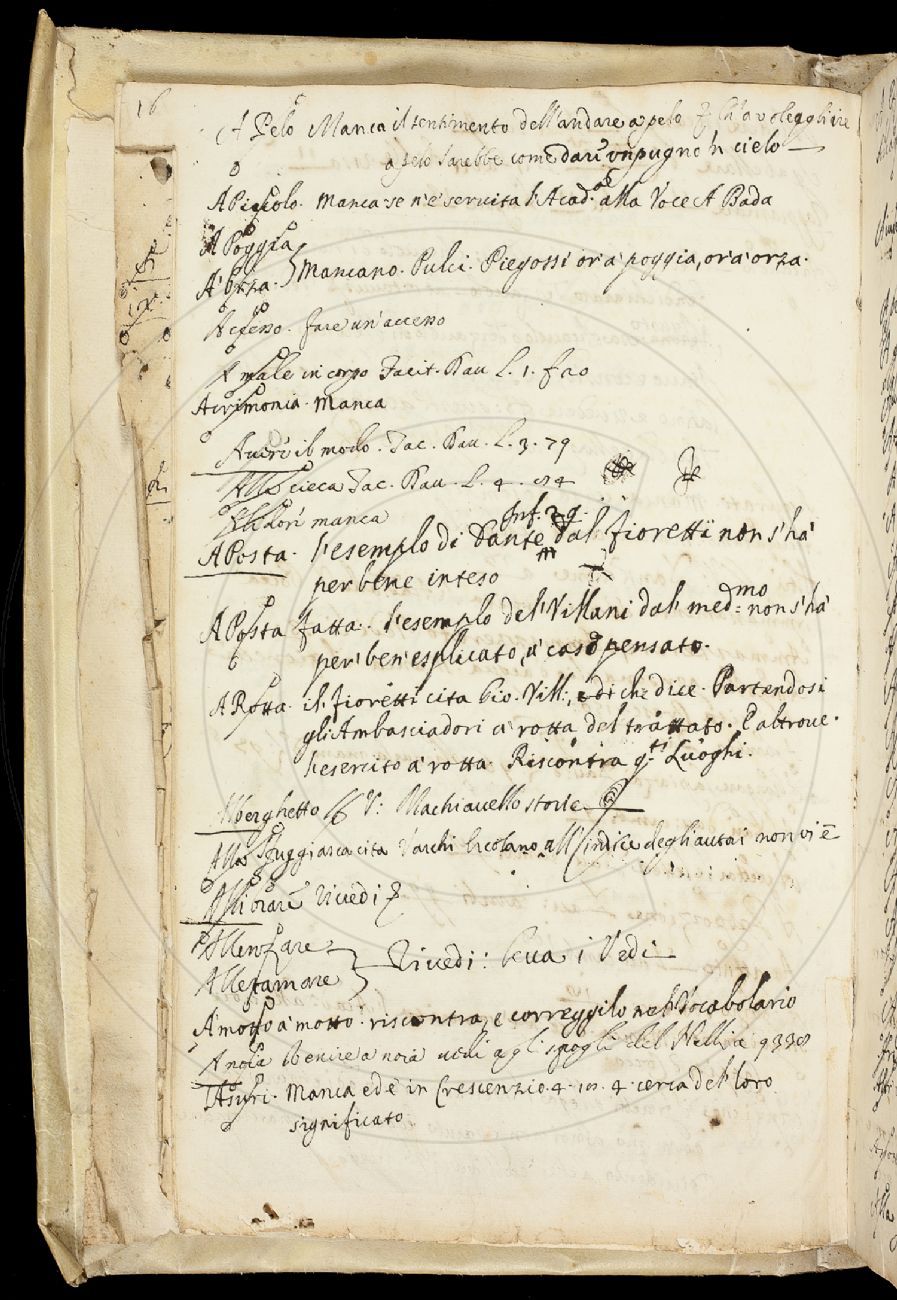 16
A Pelo Manca il sentimento dell'andare a pelo
a pelo sarebbe come dare un pugno in cielo
A Piccolo. Manca se n'è servita l'Acad.a alla Voce A Bada
A Poggia
A Orza. Mancano. Pulci. Piegossi or'a poggia, or'a orza.
Accesso. fare un'accesso
A male in corpo Tacit. Dav. L. 1. f 20
Acrimonia. Manca
Aueri il modo. Tac. Dav. L. 3. 79
Alla cieca Tac. Dav. L. 4.
manca
Inf. 29.
A Posta. l'esemplo di Dante dal Fioretti non s'ha
per bene inteso
A Posta fatta. l'esemplo del Villani dal med.mo non s'ha
per ben'esplicato, a caso pensato.
A Rotta. il Fioretti cita Gio. Vill: di che dice. Partendosi
gli Ambasciadori a rotta del trattato. E altroue.
l'esercito a rotta. Riscontra q.ti Luoghi.
Alberghetto V: Machiauello storie
Alla Sfuggiasca cita Varchi Ercolano, all'indice degli autori non vi è
Riuedi
Allenzare
Alletamare Riuedi: leua i Vedi
A motto a motto. riscontra, e correggilo nel Vocabolario
A noia Venire a noia vedi a gli spogli del
Manca ed è in Crescenzio. 4. 4. cerca del loro
significato